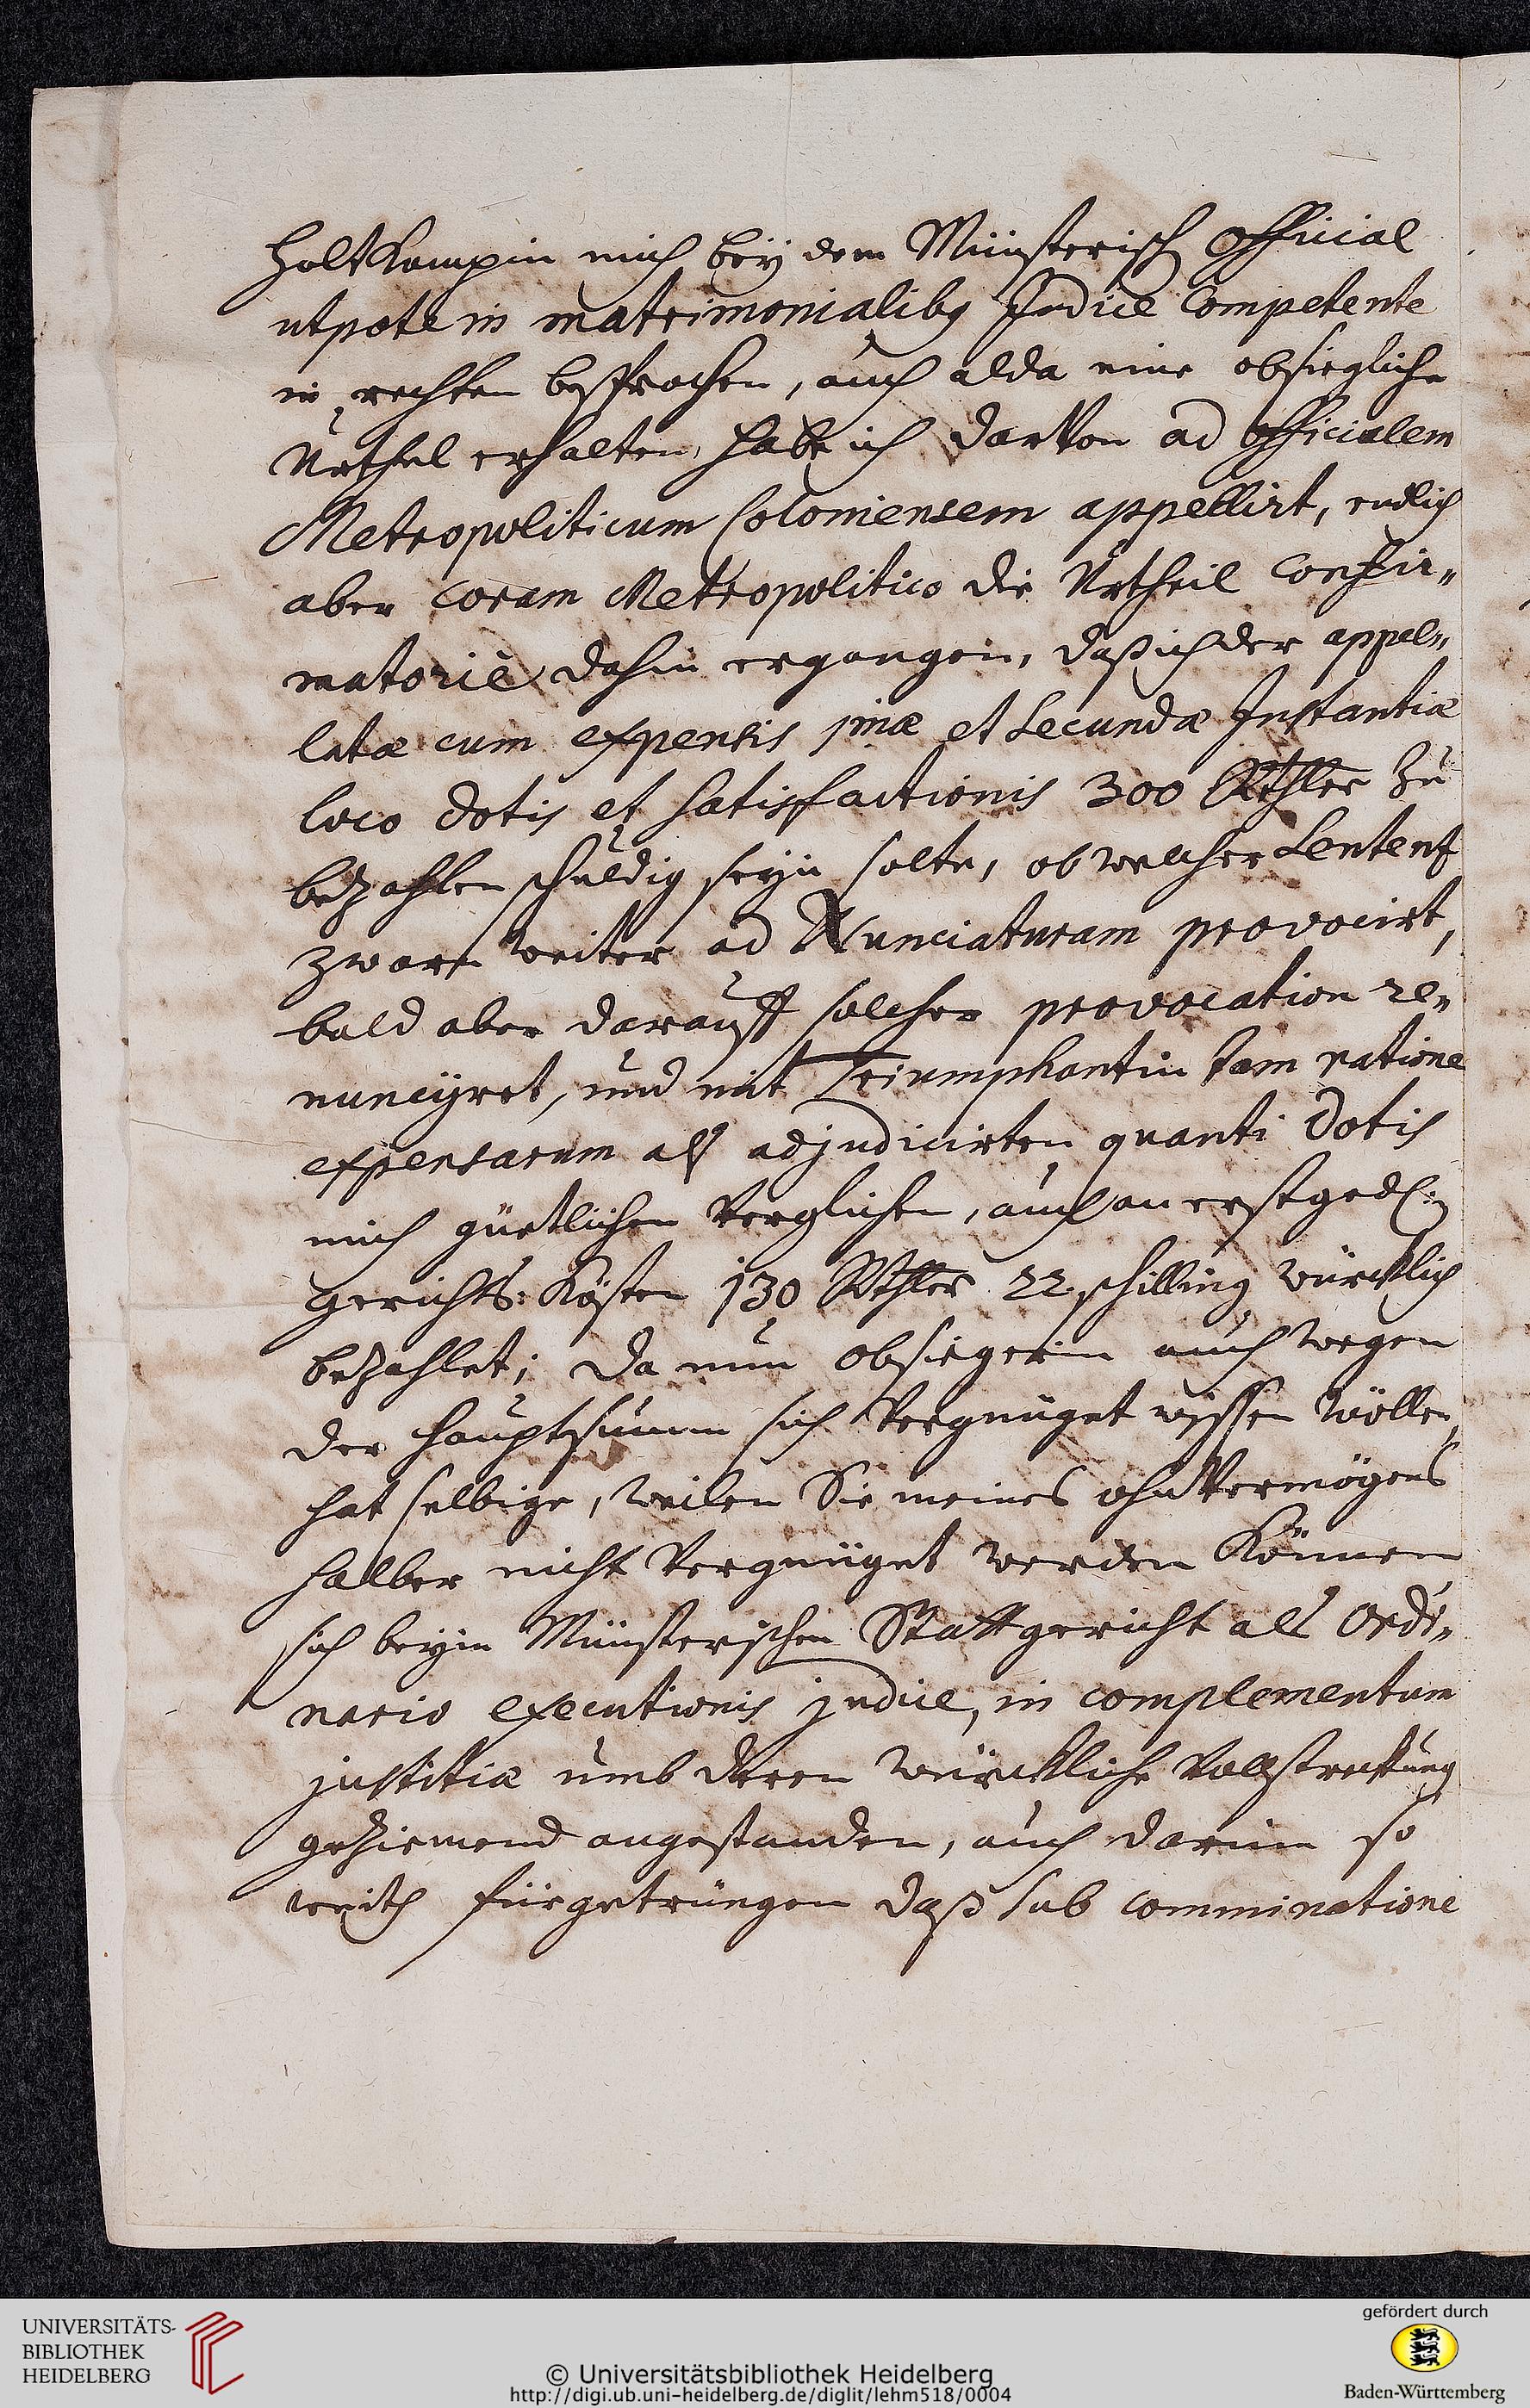 Holtkampin mich bey dem Münsterisch Official
utpote in matrimonialibus Judice Competente
in rechten besprochen, auch alda eine obsiegliche
Urthel erhalten, habe ich darvon ad officialem
Metropoliticum Coloniensem appellirt, endlich
aber coram Metropolitico die Urtheil Confir-
matoriè dahin ergangen, daß ich der appel-
latæ cum expensis 1mæ et secundæ Instantiæ
loco dotis et satisfactionis 300 Rthler zu
bezahlen schuldig seyn solte, ob welcher Sentenß
zwarn weiter ad Nunciaturam provocirt,
bald aber darauff solcher provocation re-
nuncijret, und mit Triumphantin tam ratione
expensarum als adjudicirten quanti dotis
mich güetlichen verglichen, auch an erstged:
gerichts: Kösten 130 Rthler 22 schilling würcklich
bezahlet; da nun obsiegerin auch wegen
der haupt summ sich vergnüget wissen wöllen,
hat selbige, weilen Sie meines ohnvermögens
halber nicht vergnüget werden können
sich beym Münsterischen Stattgericht als Ordi-
nario executionis judice, in complementum
justitiæ umb deren würckliche vollstreckung
geziemend angestanden, auch darin so
weith fürgetrungen daß sub comminatione
UNIVERSITÄTS-
BIBLIOTHEK
HEIDELBERG
© Universitätsbibliothek Heidelberg
http://digi.ub.uni-heidelberg.de/diglit/lehm518/0004
gefördert durch
Baden-Württemberg